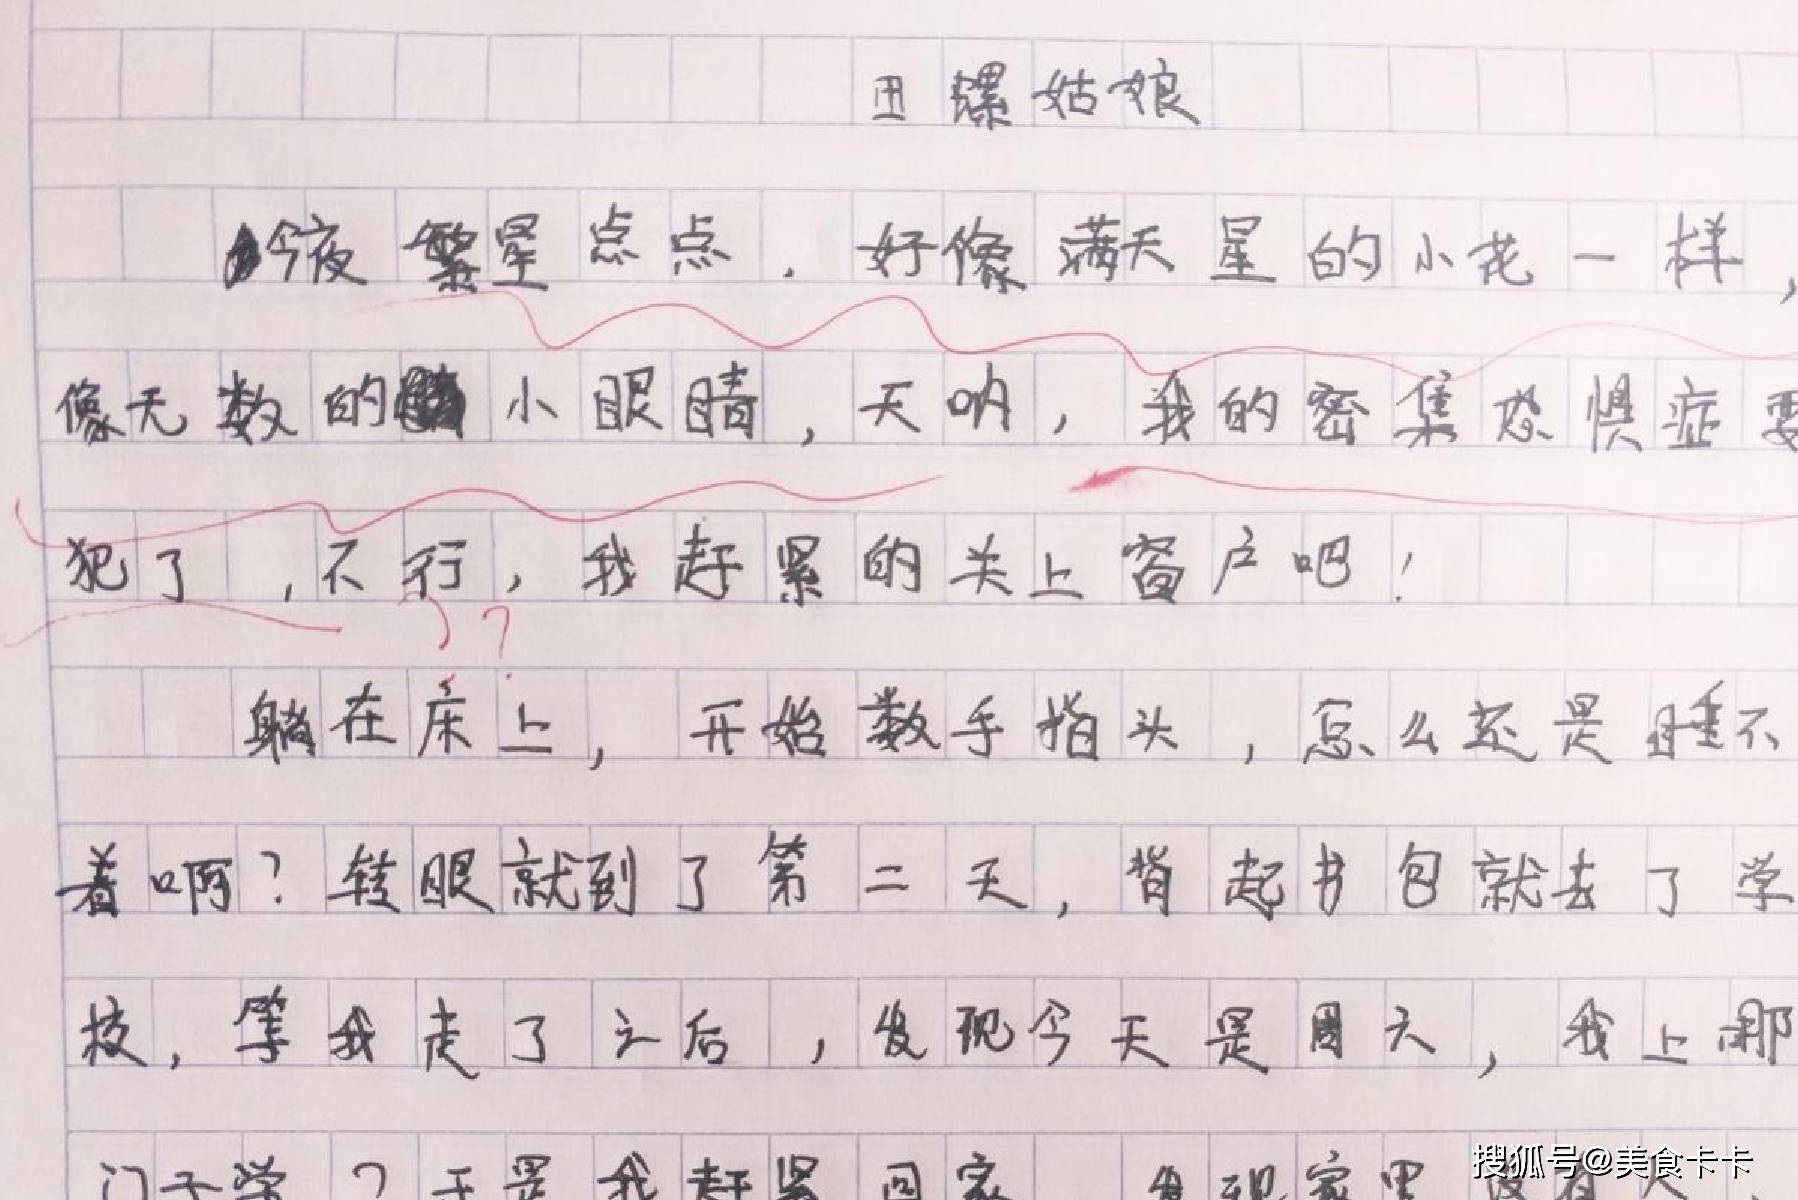 田螺姑娘
今夜繁星点点，好像满天星的小花一样，
像无数的小眼睛，天呐，我的密集恐惧症要
犯了，不行，我赶紧的关上窗户吧！
？
躺在床上，开始数手指头，怎么还是睡不
着啊？转眼就到了第二天，背起书包就去了学
校，等我走了之后，发现今天是周六，我上哪
门子学？于是我赶紧回家 发现家里没有人
搜狐号@美食卡卡